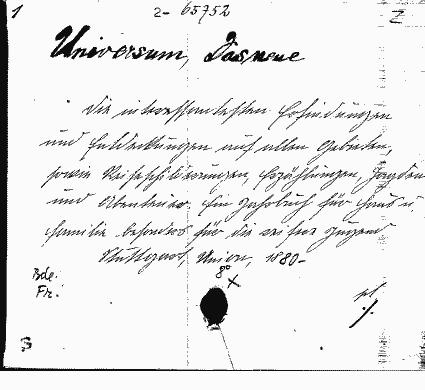 1 2- 65752 Z
Universum, Das neue
Die interessantesten Erfindungen
und Entdeckungen auf allen Gebieten,
sowie Reiseschilderungen, Erzählungen, Jagden
und Abenteuer. Ein Jahrbuch für Haus u.
Familie besonders für die reifere Jugend
Stuttgart, Union, 1880-
8° x
Bde.
Fr.
S